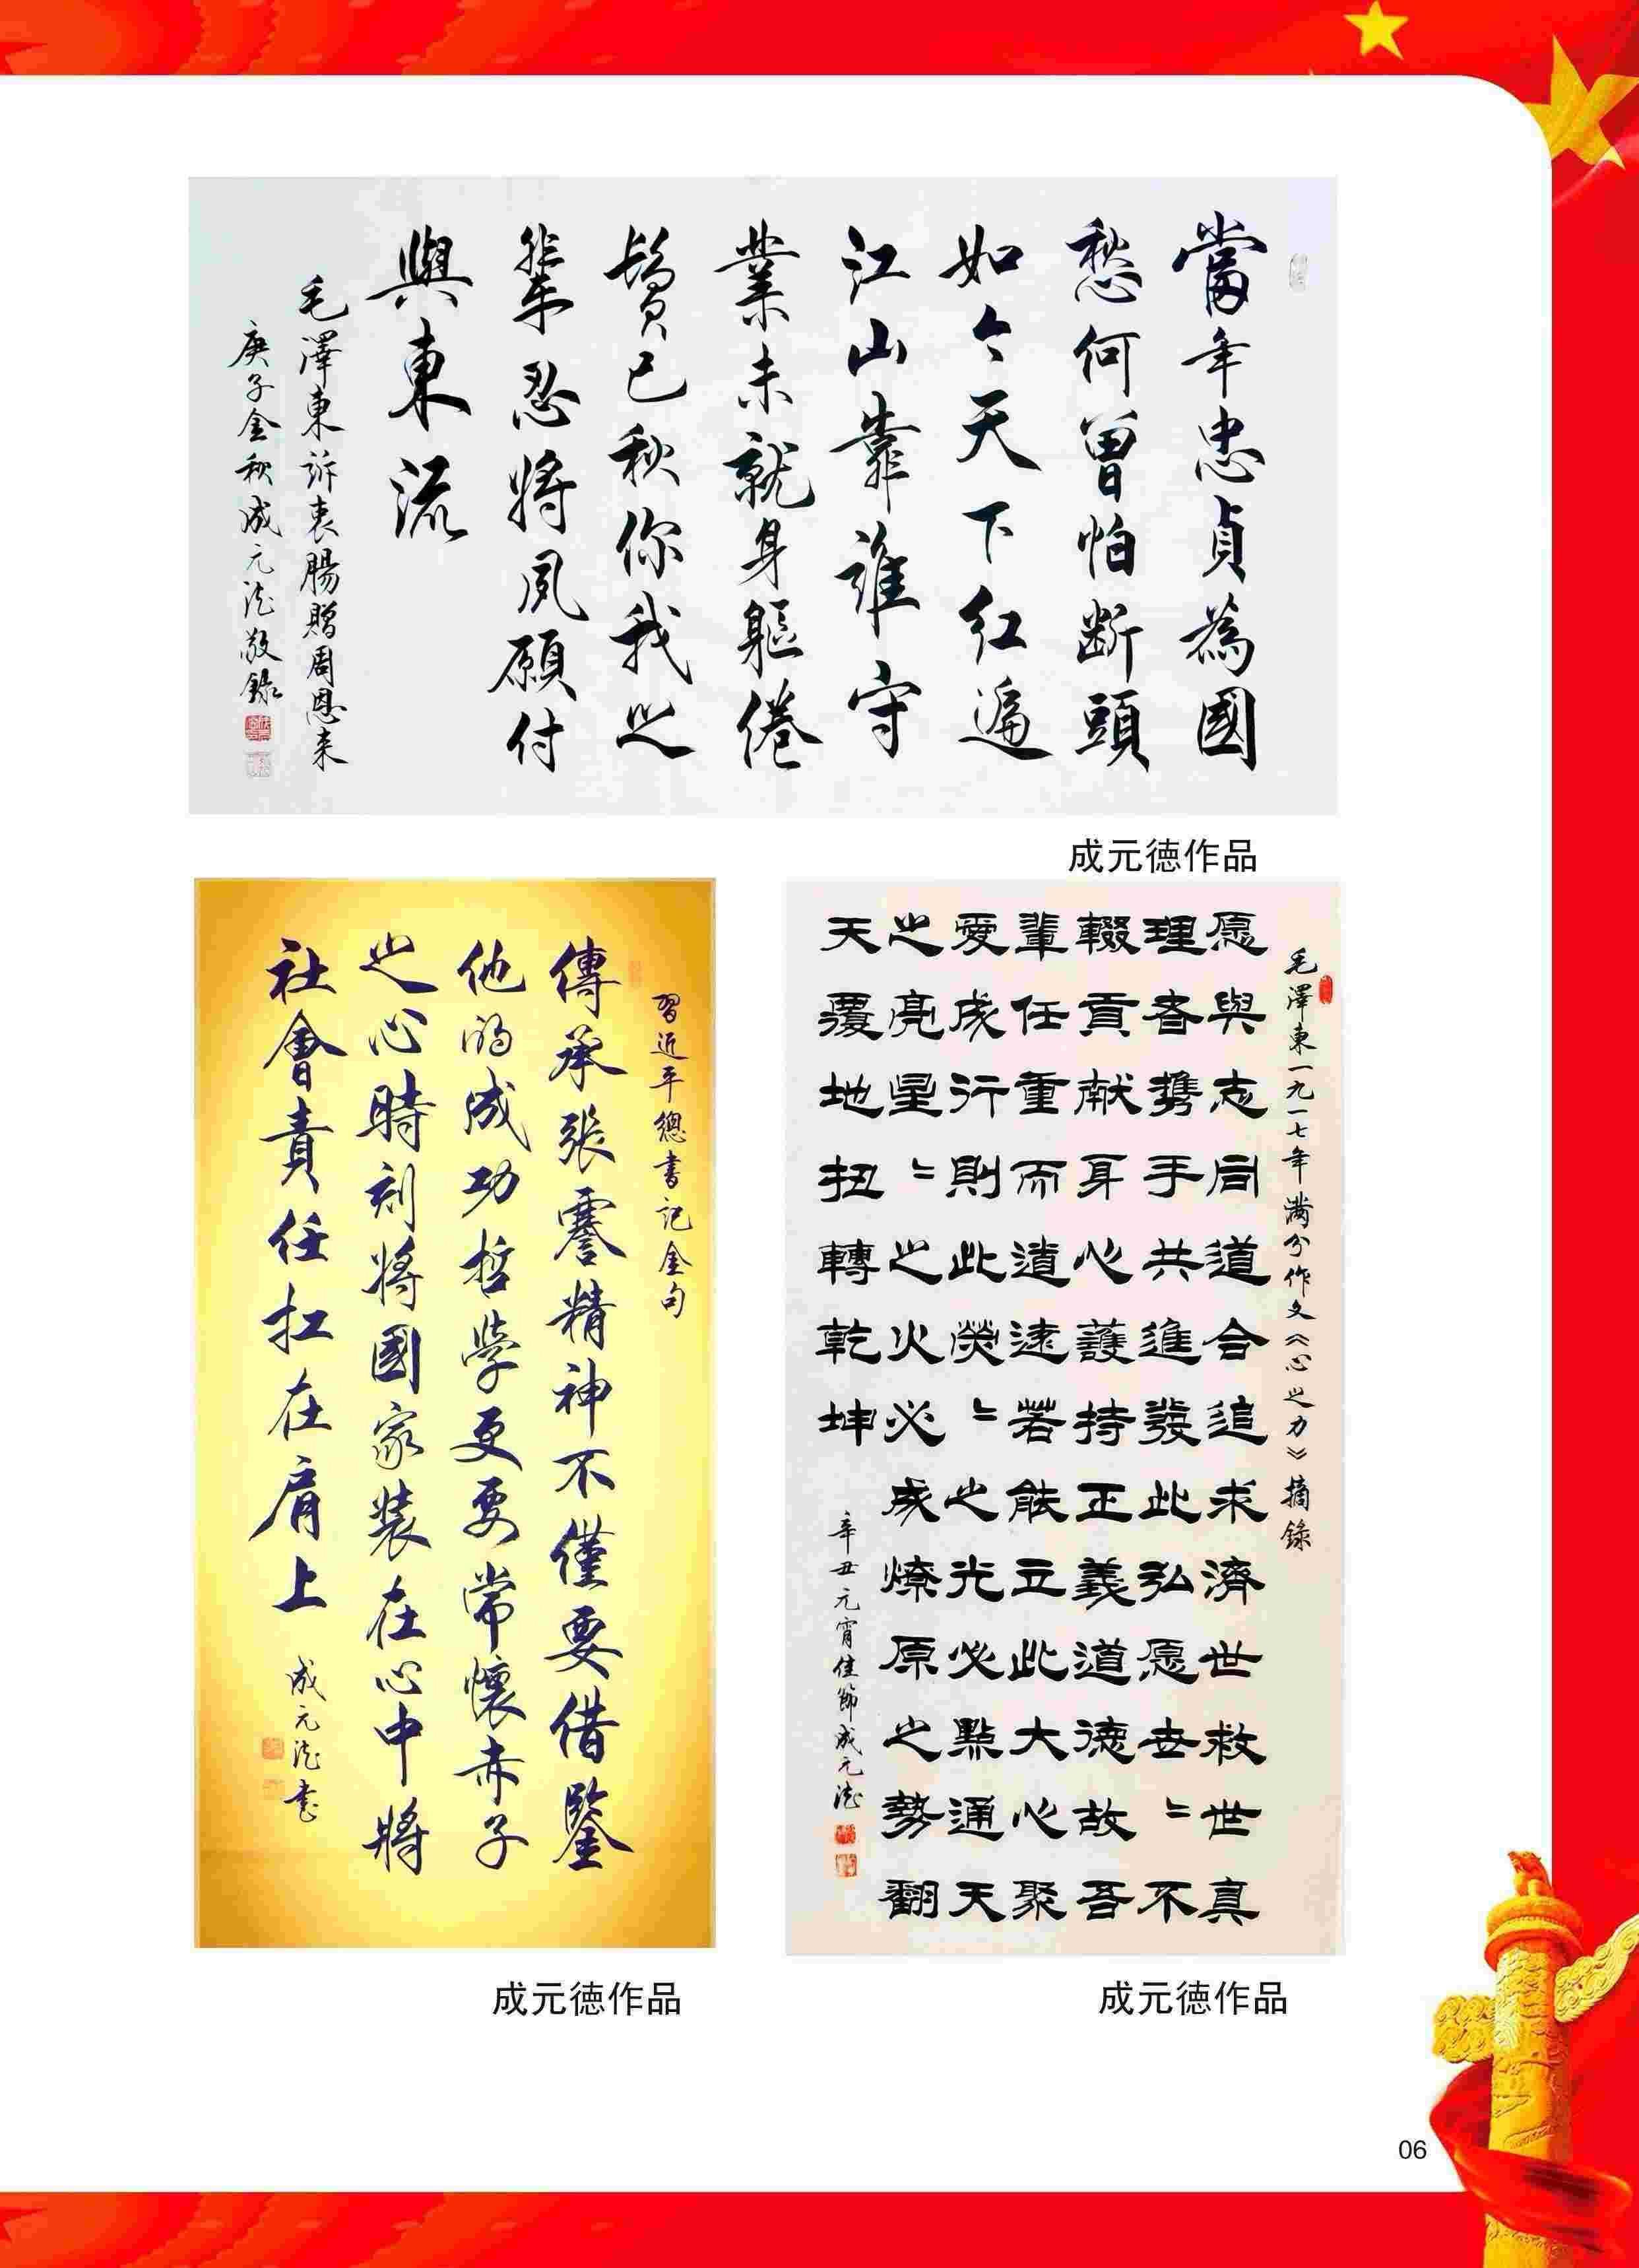 當年忠貞為國
愁何曾怕断頭
如今天下红遍
江山靠誰守
業未就身軀倦
鬓已秋你我之
輩忍將夙願付
與東流
毛澤東訴衷腸贈周恩来
庚子金秋成元德敬錄
成元德作品
習近平總書記金句
傳承張謇精神不僅要借鑒
他的成功哲學更要常懷赤子
之心時刻將國家装在心中將
社會責任扛在肩上
成元德書
成元德作品
毛澤東一九一七年满分作文《心之力》摘錄
愿與志同道合追求濟世救世真
理者携手共進發此弘愿世〻不
輟貢献身心護持正義道德故吾
輩任重而道遠若能立此大心聚
愛成行則此熒〻之光必點通天
之亮星〻之火必成燎原之勢翻
天覆地扭轉乾坤
辛丑元宵佳節成元德
成元德作品
06